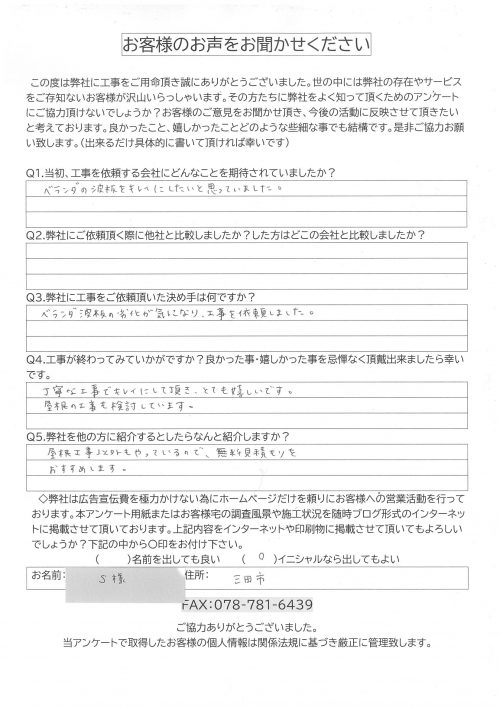 お客様のお声をお聞かせください
この度は弊社に工事をご用命頂き誠にありがとうございました。世の中には弊社の存在やサービス
をご存知ないお客様が沢山いらっしゃいます。その方たちに弊社をよく知って頂くためのアンケート
にご協力頂けないでしょうか？お客様のご意見をお聞かせ頂き、今後の活動に反映させて頂きたい
と考えております。良かったこと、嬉しかったことどのような些細な事でも結構です。是非ご協力お願
い致します。（出来るだけ具体的に書いて頂ければ幸いです）
Q1.当初、工事を依頼する会社にどんなことを期待されていましたか？
ベランダの波板をキレイにしたいと思っていました。
Q2.弊社にご依頼頂く際に他社と比較しましたか？した方はどこの会社と比較しましたか？
Q3.弊社に工事をご依頼頂いた決め手は何ですか？
ベランダ波板の劣化が気になり、工事を依頼しました。
Q4.工事が終わってみていかがですか？良かった事・嬉しかった事を忌憚なく頂戴出来ましたら幸い
です。
丁寧な工事でキレイにして頂き、とても嬉しいです。
屋根の工事も検討しています。
Q5.弊社を他の方に紹介するとしたらなんと紹介しますか？
屋根工事以外もやっているので、無料見積もりを
おすすめします。
◇弊社は広告宣伝費を極力かけない為にホームページだけを頼りにお客様への営業活動を行って
おります。本アンケート用紙またはお客様宅の調査風景や施工状況を随時ブログ形式のインターネッ
トに掲載させて頂いております。上記内容をインターネットや印刷物に掲載させて頂いてもよろしい
でしょうか？下記の中から〇印をお付け下さい。
（　　）名前を出しても良い　（ ○ ）イニシャルなら出してもよい
お名前： S様 住所： 三田市
FAX:078-781-6439
ご協力ありがとうございました。
当アンケートで取得したお客様の個人情報は関係法規に基づき厳正に管理致します。